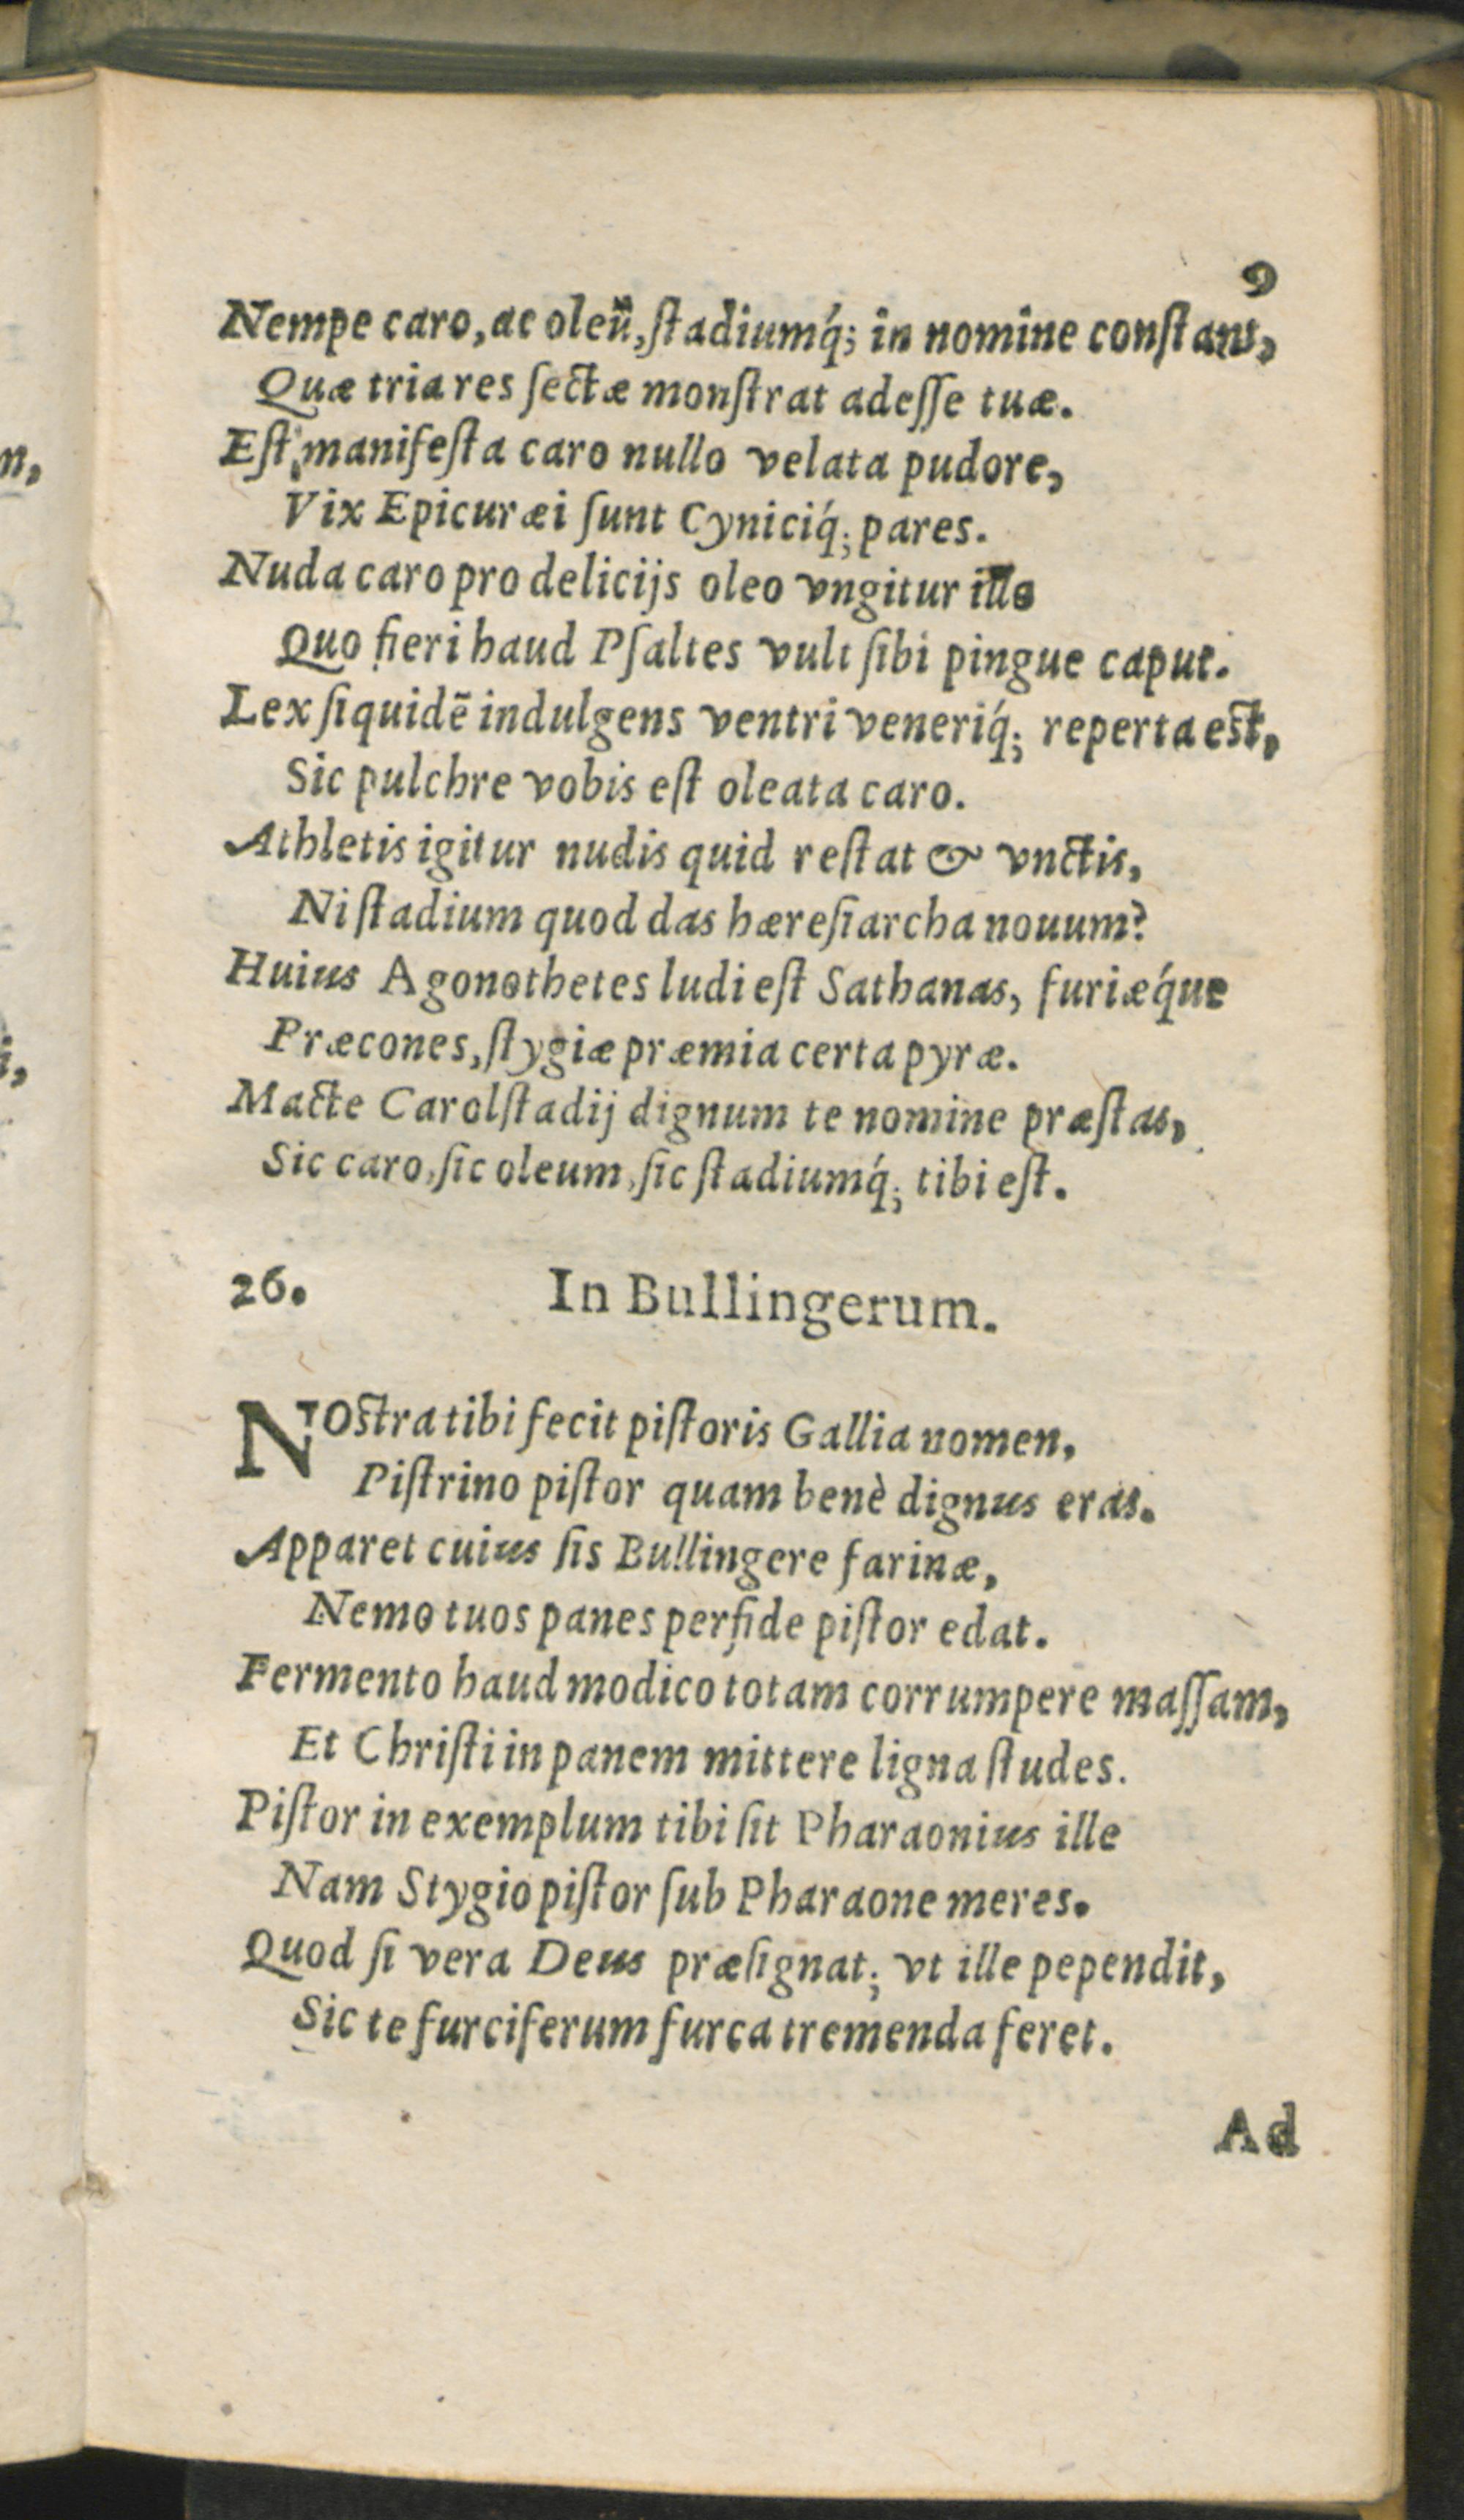 9
Nempe caro, ac oleũ, ſtadiumq́; in nomine conſtant,
Quæ tria res ſectæ monſtrat adeſſe tuæ.
Eſt manifeſta caro nullo velata pudore,
Vix Epicuræi ſunt Cyniciq́; pares.
Nuda caro pro delicijs oleo vngitur illo
Quo fieri haud Pſaltes vult ſibi pingue caput.
Lex ſiquidẽ indulgens ventri veneriq́; reperta eſt,
Sic pulchre vobis eſt oleata caro.
Athletis igitur nudis quid reſtat & vnctis,
Ni ſtadium quod das hæreſiarcha nouum?
Huius Agonothetes ludi eſt Sathanas, furiæq́ue
Præcones, ſtygiæ præmia certa pyræ.
Macte Carolſtadij dignum te nomine præſtas,
Sic caro, ſic oleum, ſic ſtadiumq́; tibi eſt.
26. In Bullingerum.
NOſtra tibi fecit piſtoris Gallia nomen,
Piſtrino piſtor quam benè dignus eras.
Apparet cuius ſis Bullingere farinæ,
Nemo tuos panes perfide piſtor edat.
Fermento haud modico totam corrumpere maſſam,
Et Chriſti in panem mittere ligna ſtudes.
Piſtor in exemplum tibi ſit Pharaonius ille
Nam Stygio piſtor ſub Pharaone meres.
Quod ſi vera Deus præſignat; vt ille pependit,
Sic te furciferum furca tremenda feret.
Ad
n,
i,